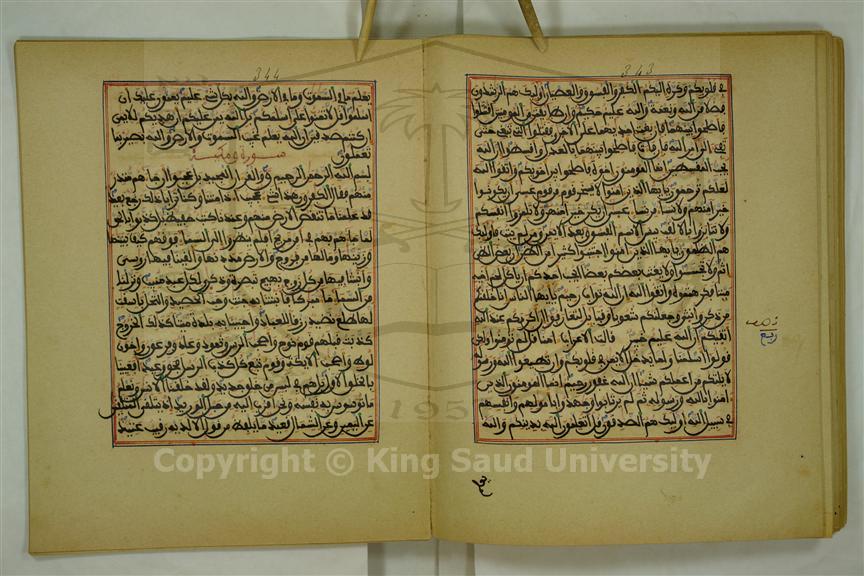 343
في قلوبكم وكره إليكم الكفر والفسوق والعصيان أوليك هم الرشدون
فضلا من الله ونعمة والله عليم حكيم وإن طايفتن من المومنين اقتتلوا
فأصلحوا بينهما فإن بغت إحديهما على الأخرى فقتلوا التي تبغي حتى
تفيء إلى أمر الله فإن فاءت فأصلحوا بينهما بالعدل وأقسطوا إن الله
يحب المقسطين إنما المومنون إخوة فأصلحوا بين أخويكم واتقوا الله
لعلكم ترحمون يأيها الذين امنوا لا يسخر قوم من قوم عسى أن يكونوا
خيرا منهم ولا نساء من نساء عسى أن يكن خيرا منهن ولا تلمزوا أنفسكم
ولا تنابزوا بالألقب بيس الاسم الفسوق بعد الايمن ومن لم يتب فأوليك
هم الظلمون يأيها الذين امنوا اجتنبوا كثيرا من الظن إن بعض الظن
إثم ولا تجسسوا ولا يغتب بعضكم بعضا أيحب أحدكم أن ياكل لحم أخيه
ميتا فكرهتموه واتقوا الله إن الله تواب رحيم يأيها الناس إنا خلقنكم
من ذكر وأنثى وجعلنكم شعوبا وقبايل لتعارفوا إن أكرمكم عند الله
أتقيكم إن الله عليم خبير قالت الاعراب امنا قل لم تومنوا ولكن
قولوا أسلمنا ولما يدخل الايمن في قلوبكم وإن تطيعوا الله ورسوله
لا يلتكم من أعملكم شيئا إن الله غفور رحيم إنما المومنون الذين
امنوا بالله ورسوله ثم لم يرتابوا وجهدوا بأمولهم وأنفسهم
في سبيل الله أوليك هم الصدقون قل أتعلمون الله بدينكم والله
يعلم
ربع
344
يعلم ما في السموت وما في الارض والله بكل شيء عليم يمنون عليك أن
أسلموا قل لا تمنوا علي إسلمكم بل الله يمن عليكم أن هديكم للايمن
إن كنتم صدقين إن الله يعلم غيب السموت والارض والله بصير بما
تعملون
سورة ق مكية
بسم الله الرحمن الرحيم ق والقرءان المجيد بل عجبوا أن جاءهم منذر
منهم فقال الكفرون هذا شيء عجيب أءذا متنا وكنا ترابا ذلك رجع بعيد
قد علمنا ما تنقص الارض منهم وعندنا كتب حفيظ بل كذبوا بالحق
لما جاءهم فهم في أمر مريج أفلم ينظروا إلى السماء فوقهم كيف بنينها
وزينها وما لها من فروج والارض مددنها وألقينا فيها روسي
وأنبتنا فيها من كل زوج بهيج تبصرة وذكرى لكل عبد منيب ونزلنا
من السماء ماء مبركا فأنبتنا به جنت وحب الحصيد والنخل باسقت
لها طلع نضيد رزقا للعباد وأحيينا به بلدة ميتا كذلك الخروج
كذبت قبلهم قوم نوح وأصحب الرس وثمود وعاد وفرعون وإخون
لوط وأصحب الايكة وقوم تبع كل كذب الرسل فحق وعيد أفعيينا
بالخلق الاول بل هم في لبس من خلق جديد ولقد خلقنا الانسن ونعلم
ما توسوس به نفسه ونحن أقرب إليه من حبل الوريد إذ يتلقى المتلقين
عن اليمين وعن الشمال قعيد ما يلفظ من قول الا لديه رقيب عتيد
1957
Copyright © King Saud University